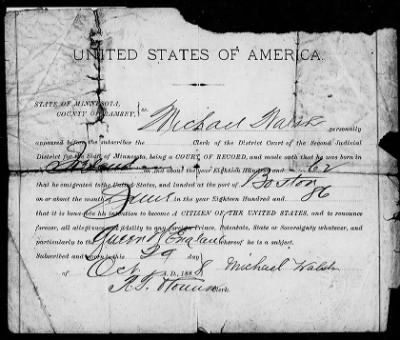 UNITED STATES OF AMERICA.
STATE OF MINNESOTA,
COUNTY OF RAMSEY, } ss.
Michael Walsh personally
appeared before the subscriber the Clerk of the District Court of the Second Judicial
District for the State of Minnesota, being a COURT OF RECORD, and made oath that he was born in
Ireland on or about the year Eighteen Hundred and 62
that he emigrated to the United States, and landed at the port of Boston
on or about the month June in the year Eighteen Hundred and 86
that it is bona fide his intention to become A CITIZEN OF THE UNITED STATES, and to renounce
forever, all allegiance and fidelity to any foreign Prince, Potentate, State or Sovereignty whatever, and
particularly to the Queen of England whereof he is a subject.
Subscribed and sworn to this 29 day
of Oct A.D., 1888. Michael Walsh
Clerk.